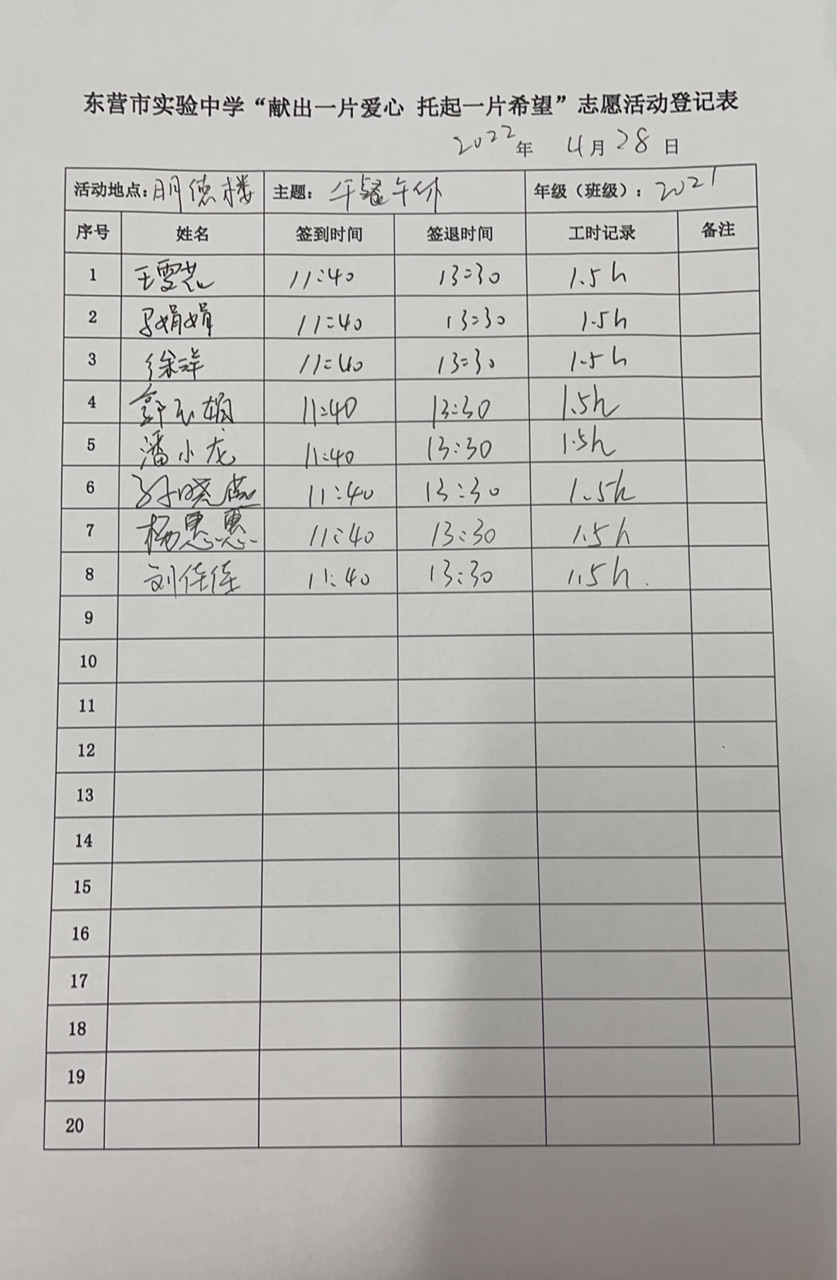 东营市实验中学“献出一片爱心 托起一片希望”志愿活动登记表
2022年 4月28日
活动地点：明德楼 主题：午餐午休 年级（班级）：2021
序号 姓名 签到时间 签退时间 工时记录 备注
1 王雪 11:40 13:30 1.5h
2 娟娟 11:40 13:30 1.5h
3 徐洋 11:40 13:30 1.5h
4 11:40 13:30 1.5h
5 潘小龙 11:40 13:30 1.5h
6 孙晓 11:40 13:30 1.5h
7 杨惠惠 11:40 13:30 1.5h
8 刘佳佳 11:40 13:30 1.5h.
9
10
11
12
13
14
15
16
17
18
19
20